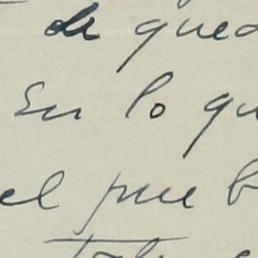 de qued
En lo qu
el pueb